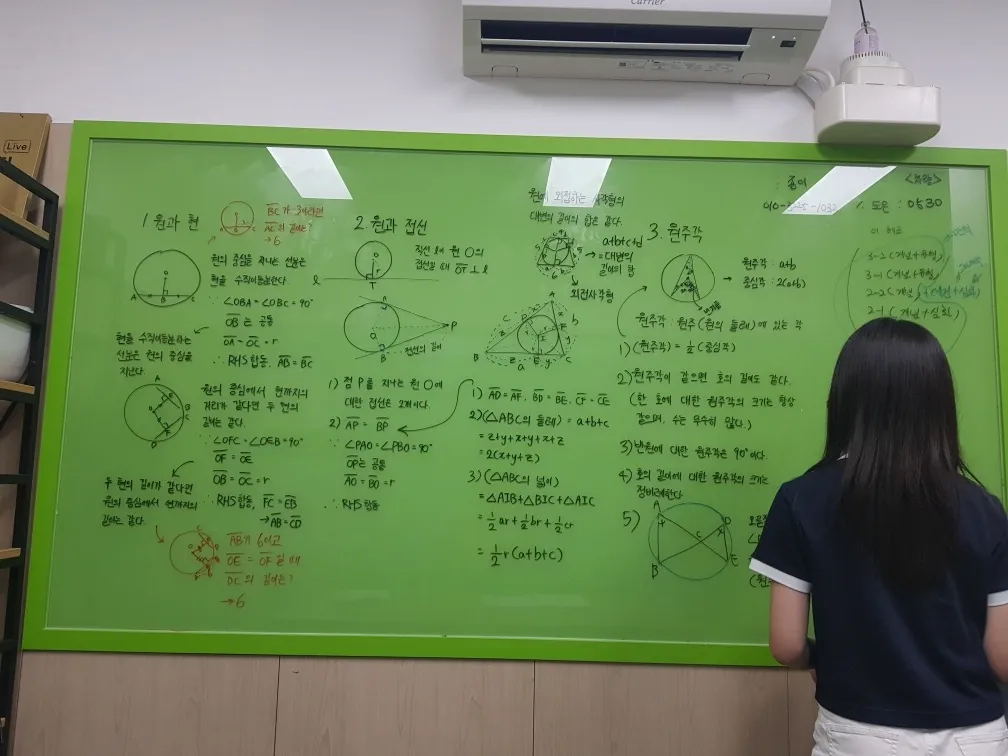 Carrier
Live
1. 원과 현
BC가 3이라면
AC의 길이는?
→ 6
원의 중심을 지나는 선분은
현을 수직이등분한다.
A B C
∵ ∠OBA = ∠OBC = 90°
OB 는 공통
OA = OC = r
∴ RHS합동, AB = BC
현을 수직이등분하는
선분은 원의 중심을
지난다.
원의 중심에서 현까지의
거리가 같다면 두 현의
길이는 같다.
∵ ∠OFC = ∠OEB = 90°
OF = OE
OB = OC = r
∴ RHS합동, FC = EB
→ AB = CD
두 현의 길이가 같다면
원의 중심에서 현까지의
길이는 같다.
AB가 6이고
OE = OF 일 때
DC 의 길이는?
→ 6
2. 원과 접선
직선 l에 원 O의
접선일 때 OT ⊥ l
O
r
T
l
A
O
P
B
접선의 길이
1) 점 P를 지나는 원 O에
대한 접선은 2개이다.
2) AP = BP
∵ ∠PAO = ∠PBO = 90°
OP는 공통
AO = BO = r
∴ RHS합동
원에 외접하는 사각형의
대변의 길이의 합은 같다.
→ 대변의
길이의 합
외접사각형
1) AD = AF, BD = BE, CF = CE
2) (△ABC의 둘레) = a+b+c
= z+y+x+y+x+z
= 2(x+y+z)
3) (△ABC의 넓이)
= △AIB + △BIC + △AIC
= 1/2 ar + 1/2 br + 1/2 cr
= 1/2 r(a+b+c)
3. 원주각
원주각 : a+b
중심각 : 2(a+b)
원주각 : 원주(원의 둘레)에 있는 각
1) (원주각) = 1/2 (중심각)
2) 원주각이 같으면 호의 길이도 같다.
(한 호에 대한 원주각의 크기는 항상
같으며, 수는 무수히 많다.)
3) 반원에 대한 원주각은 90°이다.
4) 호의 길이에 대한 원주각의 크기는
정비례한다.
5)
A
D
C
B
E
3-2 (개념+유형)
3-1 (개념+유형)
2-2 (개념
2-1 (개념+심화)